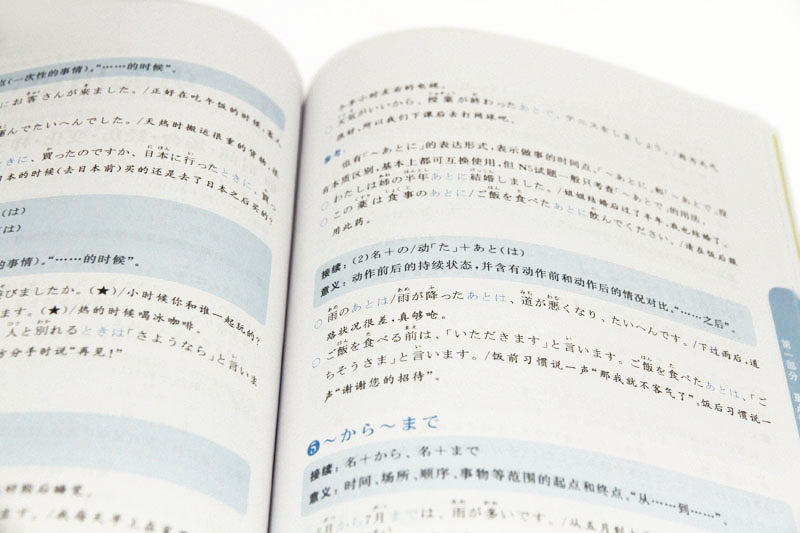 点(一次性的事情)。“……的时候”。
お客さんが来ました。/正好在吃午饭的时候,客人
んでたいへんでした。/天热时搬运很重的货物,很
ときに、買ったのですか、日本に行ったときに、買っ
日本的时候(去日本前)买的还是去了日本之后买的?
(は)
(は)
的事情)。“……的时候”。
びましたか。(★)/小时候你和谁一起玩的?
ます。(★)/热的时候喝冰咖啡。
人と別れるときは「さようなら」と言いま
分手时说“再见!”
好然后睡觉。
ます。/我每天早上在家
个半小时左右的电视。
○ 天気がいいから、授業が終わったあとで、テニスをしましょう。/因为天气
很好,所以我们下课后去打网球吧。
也有「~あとに」的表达形式,表示做事的时间点,「~あとに」和「~あとで」没
有本质区别,基本上都可互换使用,但N5试题一般只考查「~あとで」的用法。
○ わたしは姉の半年あとに結婚しました。/姐姐结婚后过了半年,我也结婚了。
○ この薬は食事のあとに/ご飯を食べたあとに飲んでください。/请在饭后服
用此药。
接续:(2)名+の/动「た」+あと(は)
意义:动作前后的持续状态,并含有动作前和动作后的情况对比。“……之后”。
○ 雨のあとは/雨が降ったあとは、道が悪くなり、たいへんです。/下过雨后,道
路状况很差,真够呛。
○ ご飯を食べる前は、「いただきます」と言います。ご飯を食べたあとは、「ご
ちそうさま」と言います。/饭前习惯说一声“那我就不客气了”,饭后习惯说一
声“谢谢您的招待”。
5 ~から~まで
接续:名+から、名+まで
意义:时间、场所、顺序、事物等范围的起点和终点。“从……到……”。
月から7月までは、雨が多いです。/从五月到
第一部分